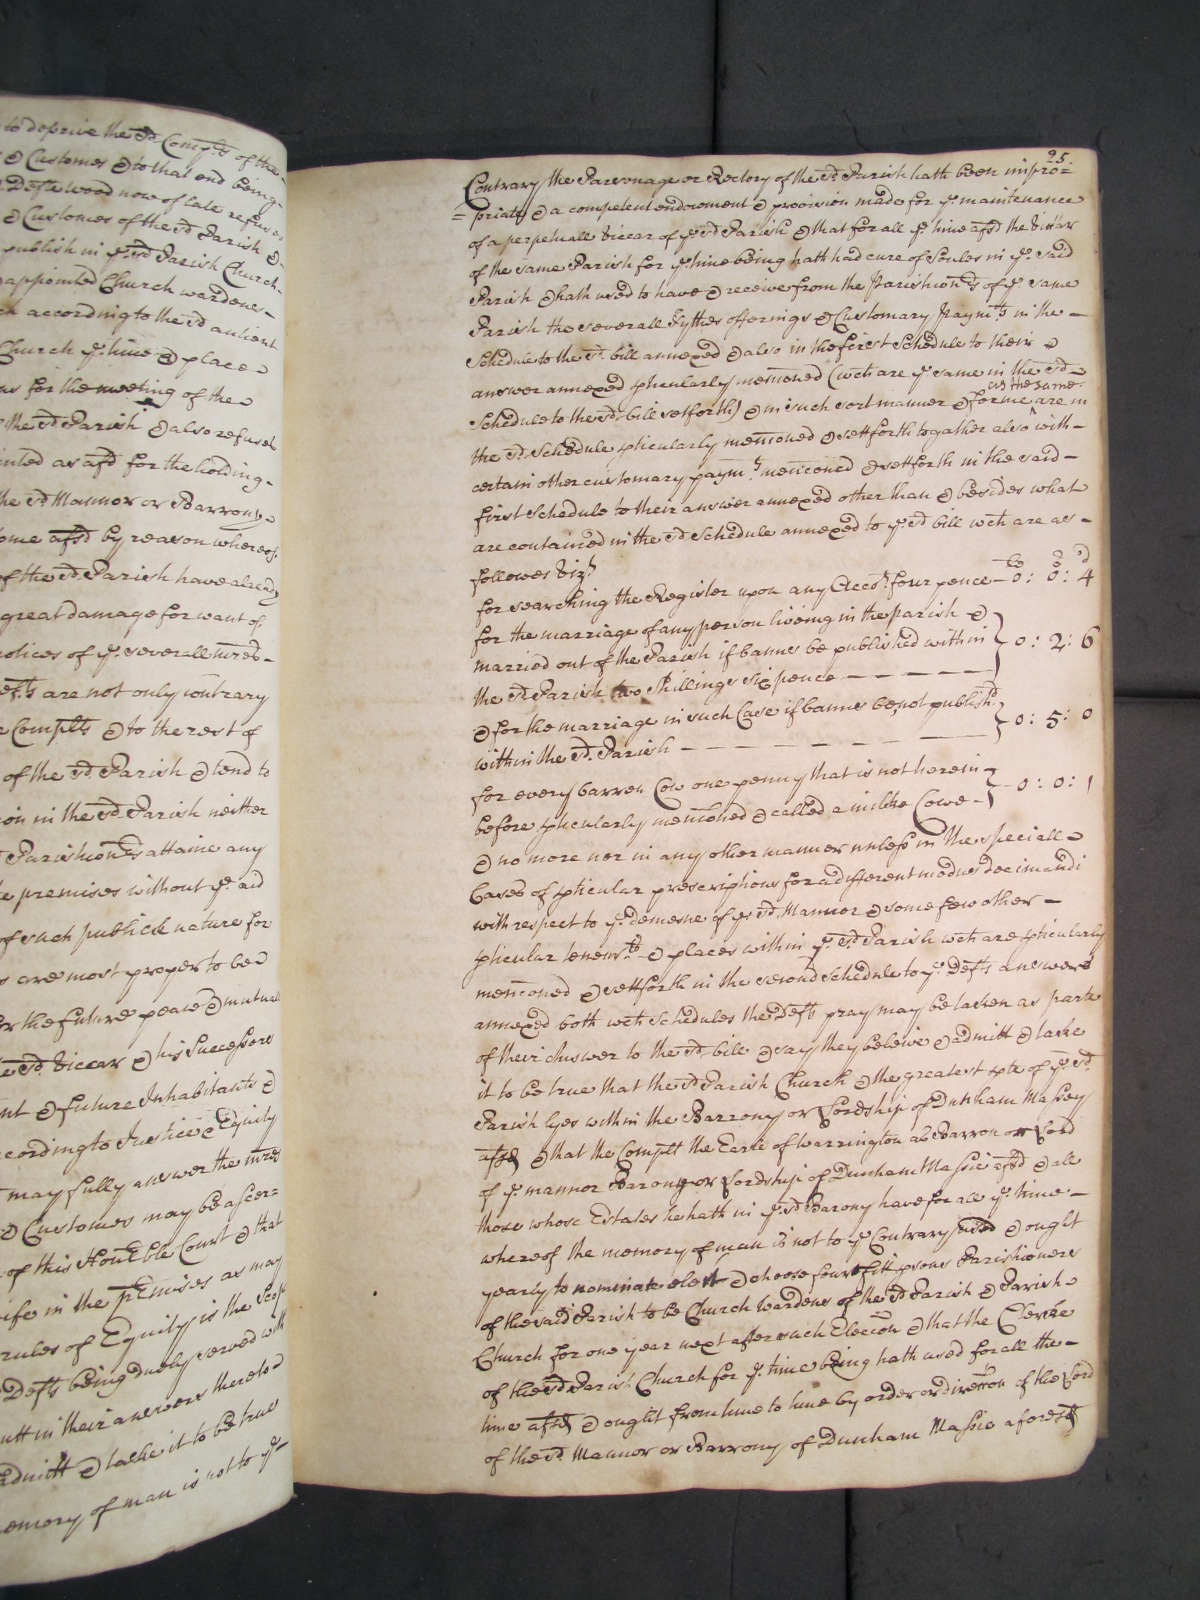 to deprive the sd. Complts of the
& Customes & to that end being
Defte wood now of late refuses
& Customes of the sd Parish &
publish in ye. sd Parish Church
appointed Church wardens
according to the sd antient
Church ye time & place
for the meeting of the
the sd Parish & also refused
as afsd for the holding
the sd Mannor or Barrony
afsd by reason whereof
of the sd Parish have already
great damage for want of
notices of ye. severall
Defts are not only contrary
Complts & to the rest of
of the sd Parish & tend to
in the sd Parish neither
Parishionrs attaine any
premises without ye. aid
of such publick nature for
are most proper to be
for the future peace & mutuall
sd. Viccar & his Successors
& future Inhabitants &
according to Justice & Equity
may fully answer the
& Customes may be ascer=
of this Honble Court & that
in the pEmises as may
rules of Equity is the scop
Defts being duely served with
in their answers thereto
admitt & take it to be true
memory of man is not to ye
25.
Contrary the Parsonage or Rectory of the sd Parish hath been impro=
=priate & a competent endowment & provision made for ye maintenance
of a perpetuall Viccar of ye sd Parish & that for all ye time afsd the Viccar
of the same Parish for ye time being hath had cure of Soules in ye. said
Parish & hath used to have & receive from the Parishionrs of ye. same
Parish the severall Tythes offerings & Customary paymts in the
Schedule to the sd. bill annexed & also in the first Schedule to their
answer annexed pticularly menconed (wch are ye same in the sd
as the same
Schedule to the sd bill setforth) & in such sort manner & forme are in
the sd Schedule pticularly menconed & settforth togather also with
certain other customary paymts menconed & settforth in the said
first Schedule to their answer annexed other than & besides what
are contained in the sd Schedule annexed to ye sd bill wch are as
followes Vizt
for searching the Register upon any Accot. four pence 0 : 0 : 4
for the marriage of any person liveing in the parish &
married out of the Parish if bannes be published within 0 : 2 : 6
the sd Parish two shillings sixpence
& for the marriage in such Case if bannes be not publishd 0 : 5 : 0
within the sd. Parish
for every barren Cow one penny that is not herein 0 : 0 : 1
before pticularly menconed & called a milke Cowe
& no more nor in any other manner unless in the speciall
Cases of pticular prescriptions for a different modus decimandi
with respect to ye. demesne of ye sd. Mannor & some few other
pticular tenemts & places within ye. sd Parish wch are pticularly
menconed & settforth in the second Schedule to ye. Defts answere
annexed both wch Schedules the Defts pray may be taken as parte
of their Answer to the sd bill & say they beleive & admitt & take
it to be true that the sd Parish Church & the greatest pte of ye. sd.
Parish lyes within the Barrony or Lordship of Dunham Massey
afsd & that the Complt the Earle of Warrington as Barron or Lord
of ye. mannor Barony or Lordship of Dunham Massie afsd & all
those whose Estates he hath in ye. sd Barony have for all ye. time
whereof the memory of man is not to ye Contrary used & ought
yearly to nominate elect & choose four fitt psons Parishioners
of the said Parish to be Church Wardens of the sd Parish & Parish
Church for one year next after such Eleccon & that the Clerke
of the sd Parish Church for ye. time being hath used for all the
time afsd & ought from time to time by order or direccon of the Lord
of the sd. Mannor or Barrony of Dunham Massie aforesd